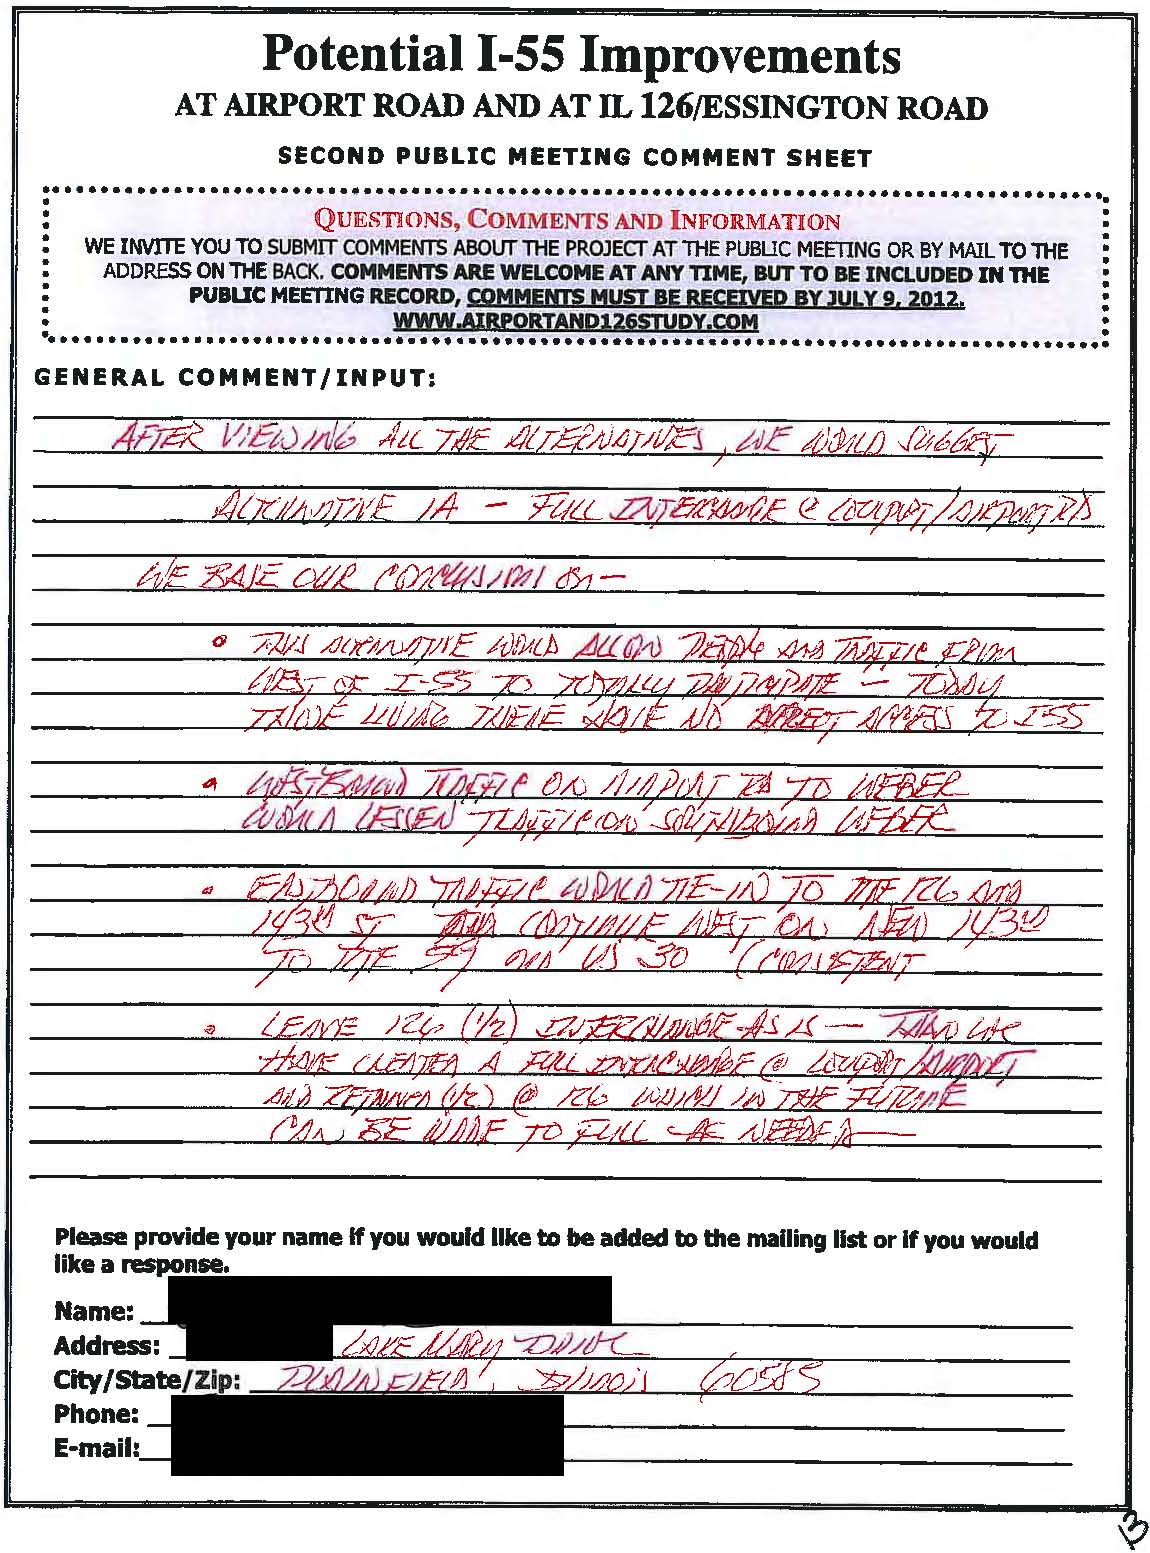 Potential I-55 Improvements
AT AIRPORT ROAD AND AT IL 126/ESSINGTON ROAD
SECOND PUBLIC MEETING COMMENT SHEET
QUESTIONS, COMMENTS AND INFORMATION
WE INVITE YOU TO SUBMIT COMMENTS ABOUT THE PROJECT AT THE PUBLIC MEETING OR BY MAIL TO THE
ADDRESS ON THE BACK. COMMENTS ARE WELCOME AT ANY TIME, BUT TO BE INCLUDED IN THE
PUBLIC MEETING RECORD, COMMENTS MUST BE RECEIVED BY JULY 9, 2012.
WWW.AIRPORTAND126STUDY.COM
GENERAL COMMENT/INPUT:
AFTER VIEWING ALL THE ALTERNATIVES, WE WOULD SUGGEST
ALTERNATIVE 1A - FULL INTERCHANGE @ LOCKPORT/AIRPORT RD
WE BASE OUR CONCLUSIONS ON -
• THIS ALTERNATIVE WOULD ALLOW PEOPLE AND TRAFFIC FROM
WEST OF I-55 TO TOTALLY PARTICIPATE - TODAY
THOSE LIVING THERE HAVE NO DIRECT ACCESS TO I55
• WESTBOUND TRAFFIC ON AIRPORT RD TO WEBER
WOULD LESSEN TRAFFIC ON SOUTHBOUND WEBER
• EASTBOUND TRAFFIC WOULD TIE-IN TO RTE 126 AND
143rd ST AND CONTINUE WEST ON NEW 143rd
TO RTE 59 AND US 30 (CONSISTENT
• LEAVE 126 (1/2) INTERCHANGE AS IS - WE
HAVE CREATED A FULL INTERCHANGE @ LOCKPORT/AIRPORT
AND RETAINED (1/2) @ 126 WHICH IN THE FUTURE
CAN BE MADE TO FULL - AS NEEDED -
Please provide your name if you would like to be added to the mailing list or if you would
like a response.
Name:
Address: LAKE MARY DRIVE
City/State/Zip: PLAINFIELD, Illinois 60585
Phone:
E-mail:
13